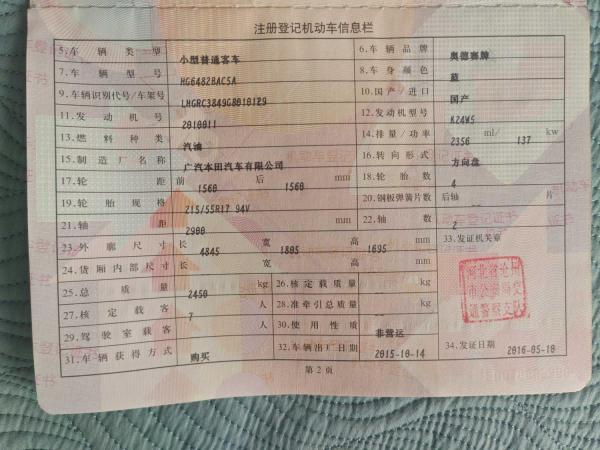 注册登记机动车信息栏
5.车辆类型 小型普通客车 6.车辆品牌 奥德赛牌
7.车辆型号 HG6482BAC5A 8.车身颜色 蓝
9.车辆识别代号/车架号 LHGRC3849G8010129 10.国产/进口 国产
11.发动机号 2010011 12.发动机型号 K24W5
13.燃料种类 汽油 14.排量/功率 2356 ml/ 137 kw
15.制造厂名称 广汽本田汽车有限公司 16.转向形式 方向盘
17.轮距 前 1560 后 1560 mm 18.轮胎数 4
19.轮胎规格 215/55R17 94V 20.钢板弹簧片数 后轴 片
21.轴距 2900 mm 22.轴数 2
23.外廓尺寸 长 4845 宽 1805 高 1695 mm 33.发证机关章
24.货厢内部尺寸 长 宽 高 mm
25.总质量 2450 kg 26.核定载质量 kg
27.核定载客 7 人 28.准牵引总质量 kg
29.驾驶室载客 人 30.使用性质 非营运
31.车辆获得方式 购买 32.车辆出厂日期 2015-10-14 34.发证日期 2016-05-10
河北省沧州
市公安局交
通警察支队
第2页